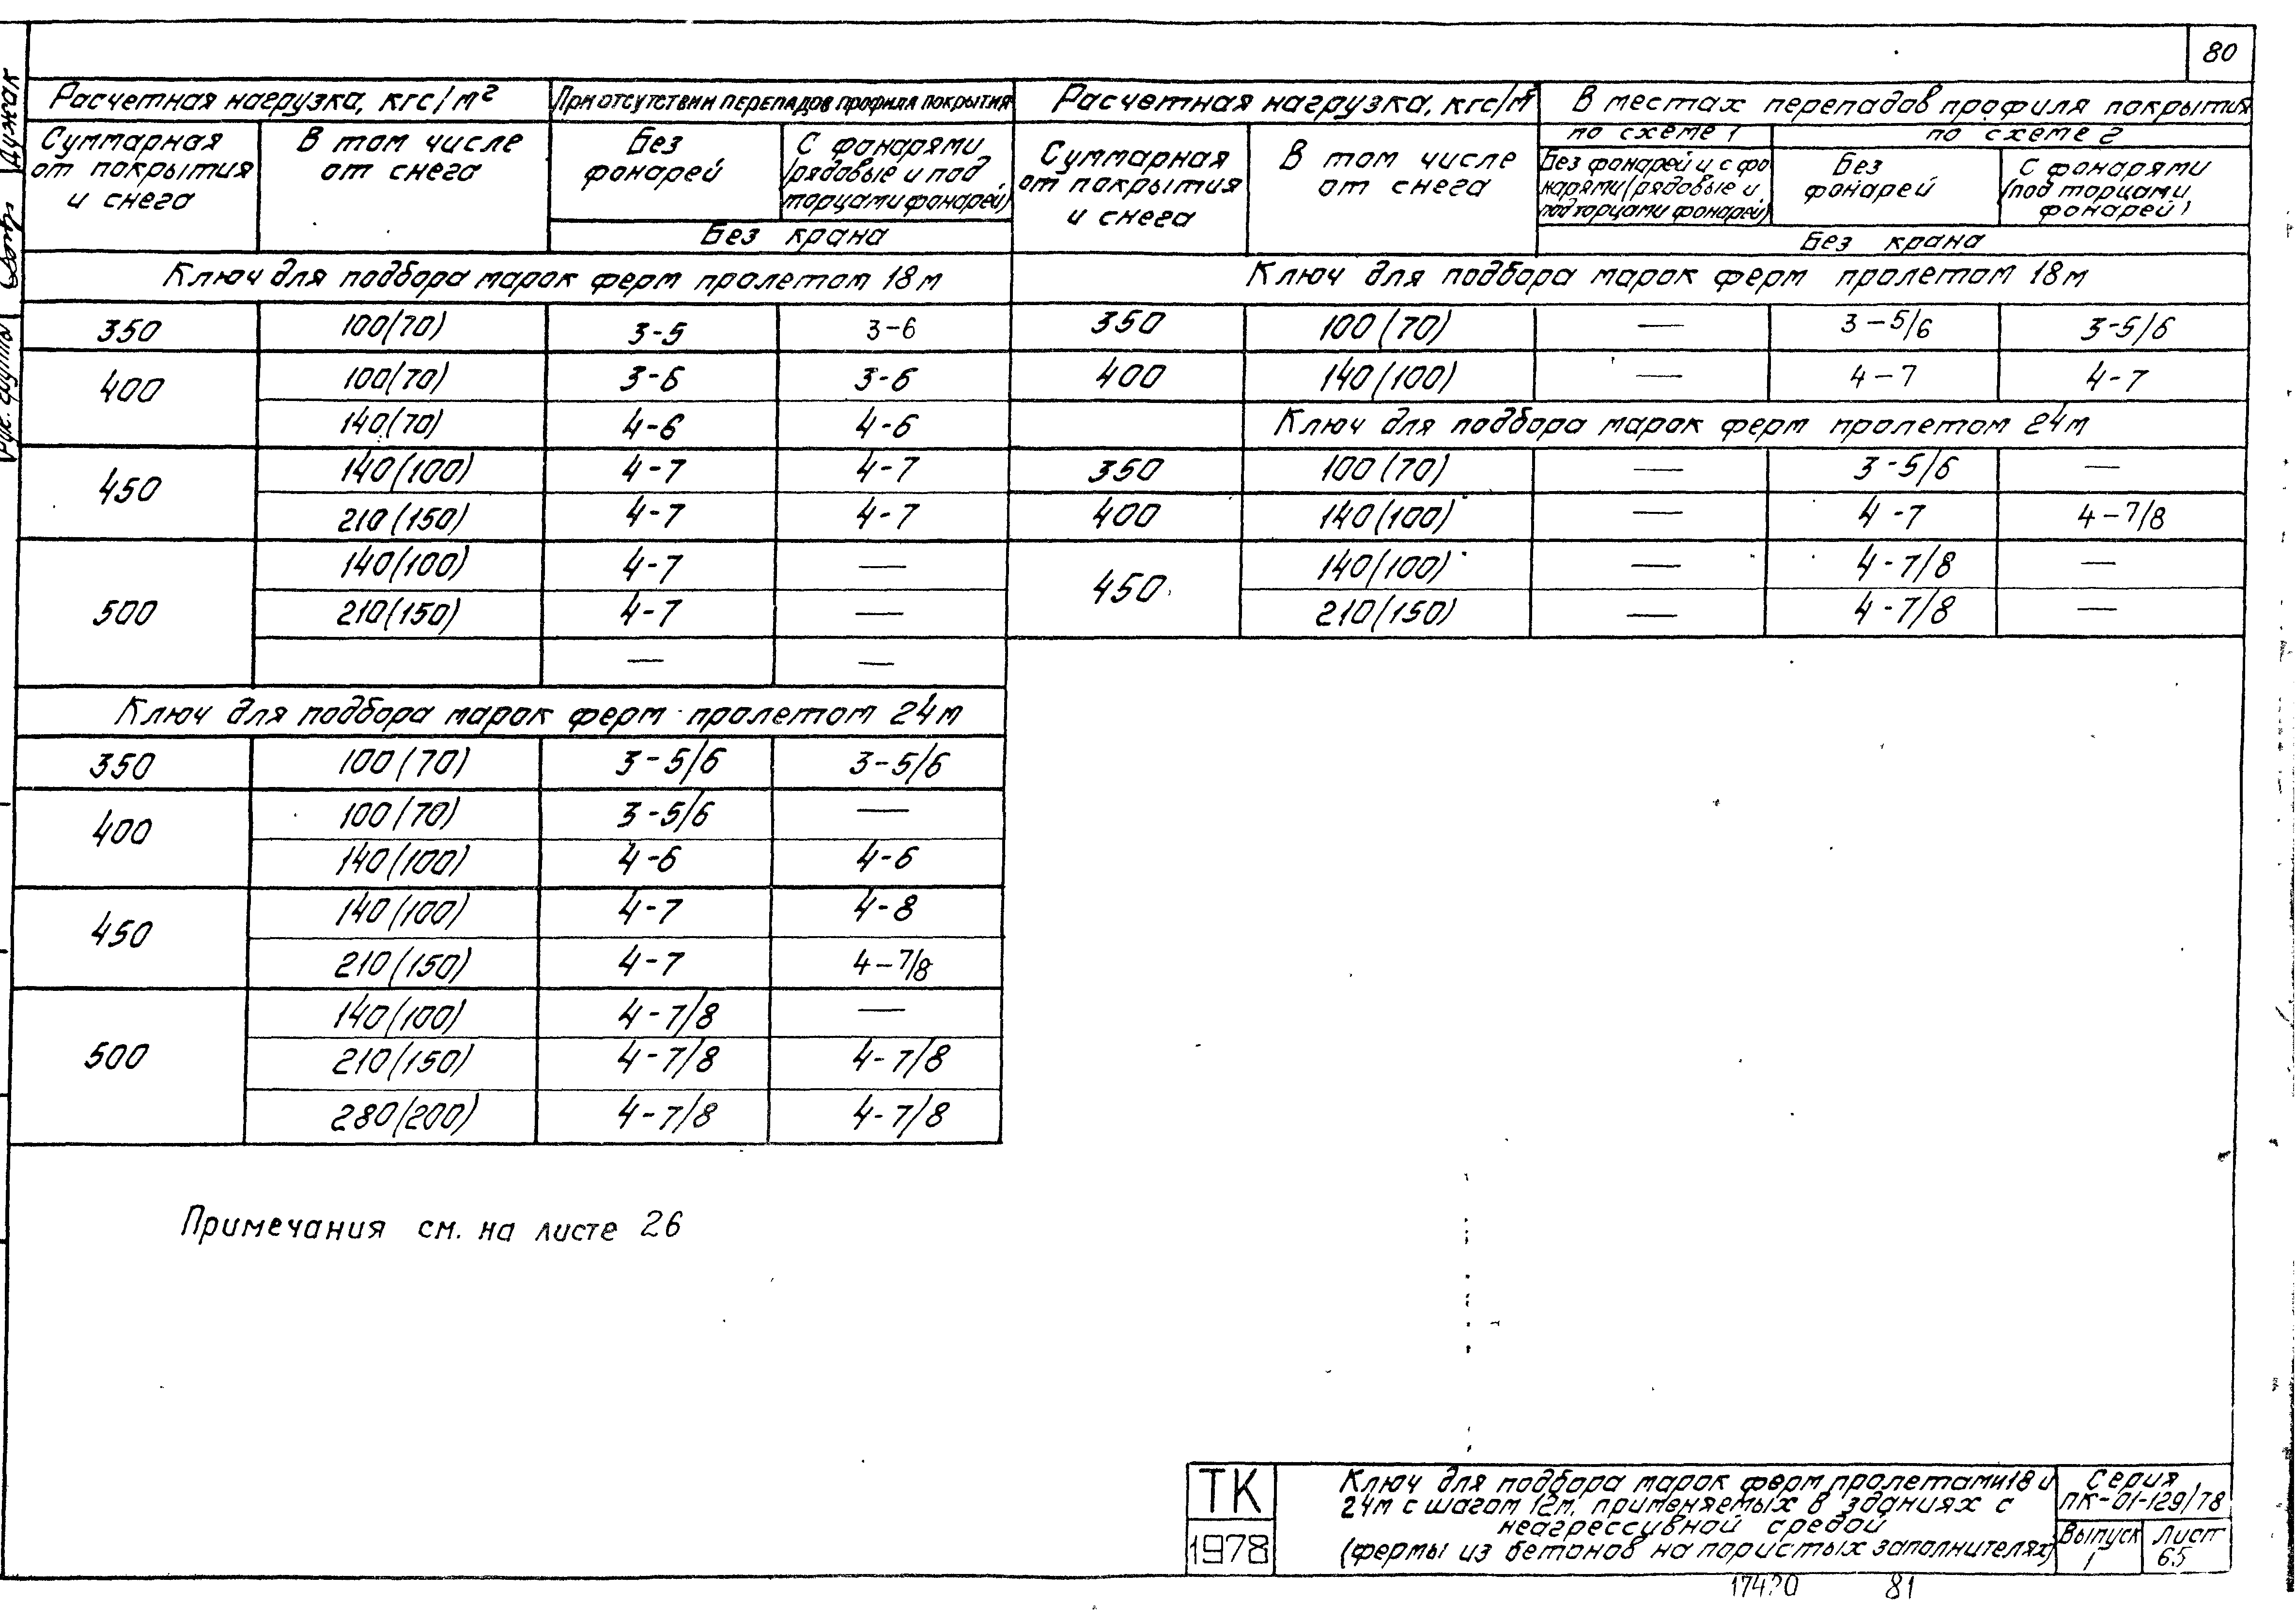 80
Расчетная нагрузка, кгс/м²
При отсутствии перепадов профиля покрытия
Суммарная от покрытия и снега
В том числе от снега
Без фонарей
С фонарями (рядовые и под торцами фонарей)
Без крана
Ключ для подбора марок ферм пролетом 18м
350 100(70) 3-5 3-6
400 100(70) 3-6 3-6
140(70) 4-6 4-6
450 140(100) 4-7 4-7
210(150) 4-7 4-7
500 140(100) 4-7 —
210(150) 4-7 —
— —
Ключ для подбора марок ферм пролетом 24м
350 100(70) 3-5/6 3-5/6
400 100(70) 3-5/6 —
140(100) 4-6 4-6
450 140(100) 4-7 4-8
210(150) 4-7 4-7/8
500 140(100) 4-7/8 —
210(150) 4-7/8 4-7/8
280(200) 4-7/8 4-7/8
Расчетная нагрузка, кгс/м²
В местах перепадов профиля покрытия
по схеме 1
по схеме 2
Суммарная от покрытия и снега
В том числе от снега
Без фонарей и с фонарями (рядовые и под торцами фонарей)
Без фонарей
С фонарями (под торцами фонарей)
Без крана
Ключ для подбора марок ферм пролетом 18м
350 100(70) — 3-5/6 3-5/6
400 140(100) — 4-7 4-7
Ключ для подбора марок ферм пролетом 24м
350 100(70) — 3-5/6 —
400 140(100) — 4-7 4-7/8
450 140(100) — 4-7/8 —
210(150) — 4-7/8 —
Примечания см. на листе 26
ТК
1978
Ключ для подбора марок ферм пролетами 18 и
24м с шагом 12м, применяемых в зданиях с
неагрессивной средой
(фермы из бетонов на пористых заполнителях)
Серия
ПК-01-129/78
Выпуск
1
Лист
65
81